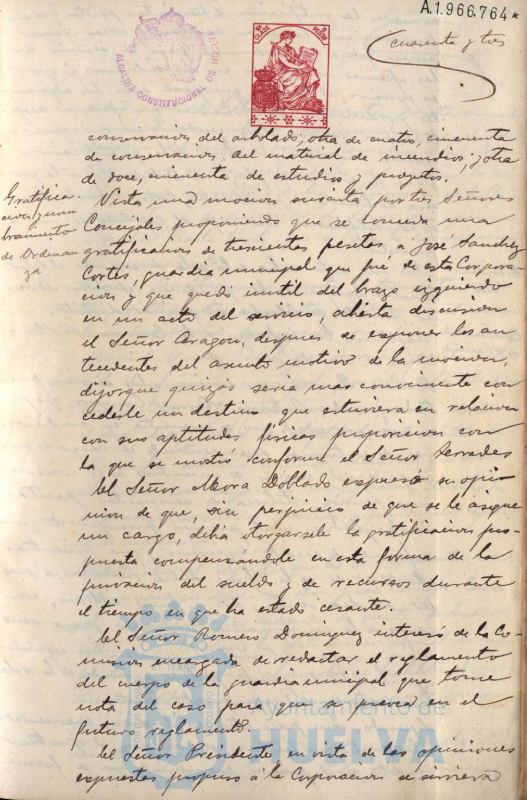 A.1.966.764*
cuarenta y tres
ALCALDIA CONSTITUCIONAL DE HUELVA
conservacion del arbolado; otra de cuatro, cincuenta
de conservacion del material de incendios; y otra
de doce, cincuenta de estudios y proyectos.
Gratifica-
cion y nom
bramiento
de Ordenan
za
Vista una mocion suscrita por tres Señores
Concejales proponiendo que se conceda una
gratificacion de trescientas pesetas a José Sanchez
Cortés, guardia municipal que fué de esta Corpora-
cion y que quedó inutil del brazo izquierdo
en un acto del servicio, abierta discusion
el Señor Aragon, despues de exponer los an
tecedentes del asunto motivo de la mocion,
dijo que quizás seria mas conveniente con
cederle un destino que estuviera en relacion
con sus aptitudes fisicas proposicion con
la que se mostró conforme el Señor Terrades
El Señor Mora Doblado expresó su opi-
nion de que, sin perjuicio de que se le asigne
un cargo, debia otorgarsele la gratificacion pro-
puesta compensándole en esta forma de la
privacion del sueldo y de recursos durante
el tiempo en que ha estado cesante.
El Señor Romero Dominguez interesó de la Co-
mision encargada de redactar el reglamento
del cuerpo de la guardia municipal que tome
nota del caso para que se prevea en el
futuro reglamento.
El Señor Presidente, en vista de las opiniones
expuestas propuso á la Corporacion se sirviera
Ayuntamiento de
HUELVA